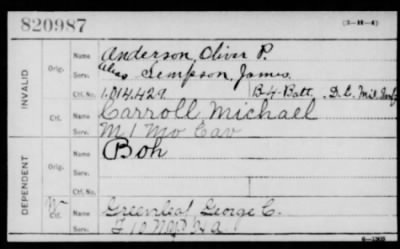 820987 (3-H-4)
INVALID
Orig. Name Anderson, Oliver P.
Serv. alias Sempson, James.
Ctf. No. 1,014,429 B 4 Batt. D.C. Mil. Inf
Ctf. Name Carroll Michael
Serv. M 1 Mo Cav
DEPENDENT
Orig. Name Boh
Serv.
Ctf. No.
W Ctf. Name Greenleaf George C.
Serv. F 10 H A
6-1903